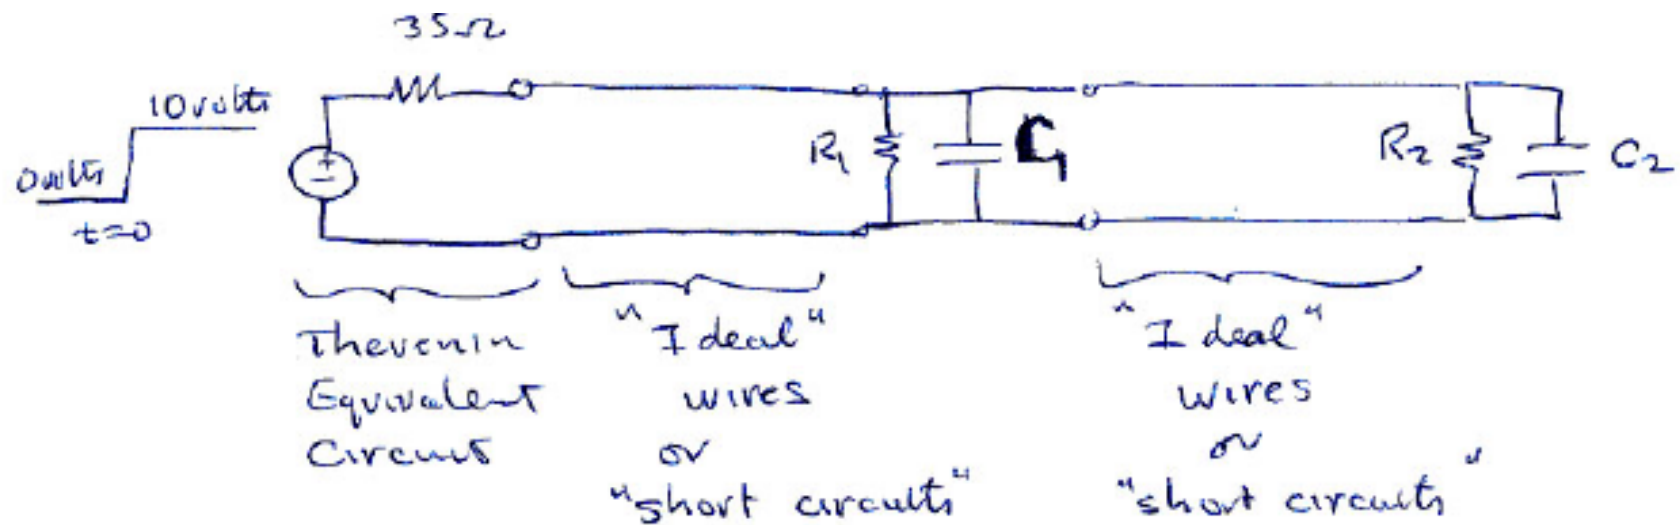 35Ω
10 volts
0 volts
t=0
+
−
R₁
C₁
R₂
C₂
Thevenin
Equivalent
Circuit
"Ideal"
wires
or
"short circuits"
"Ideal"
wires
or
"short circuits"